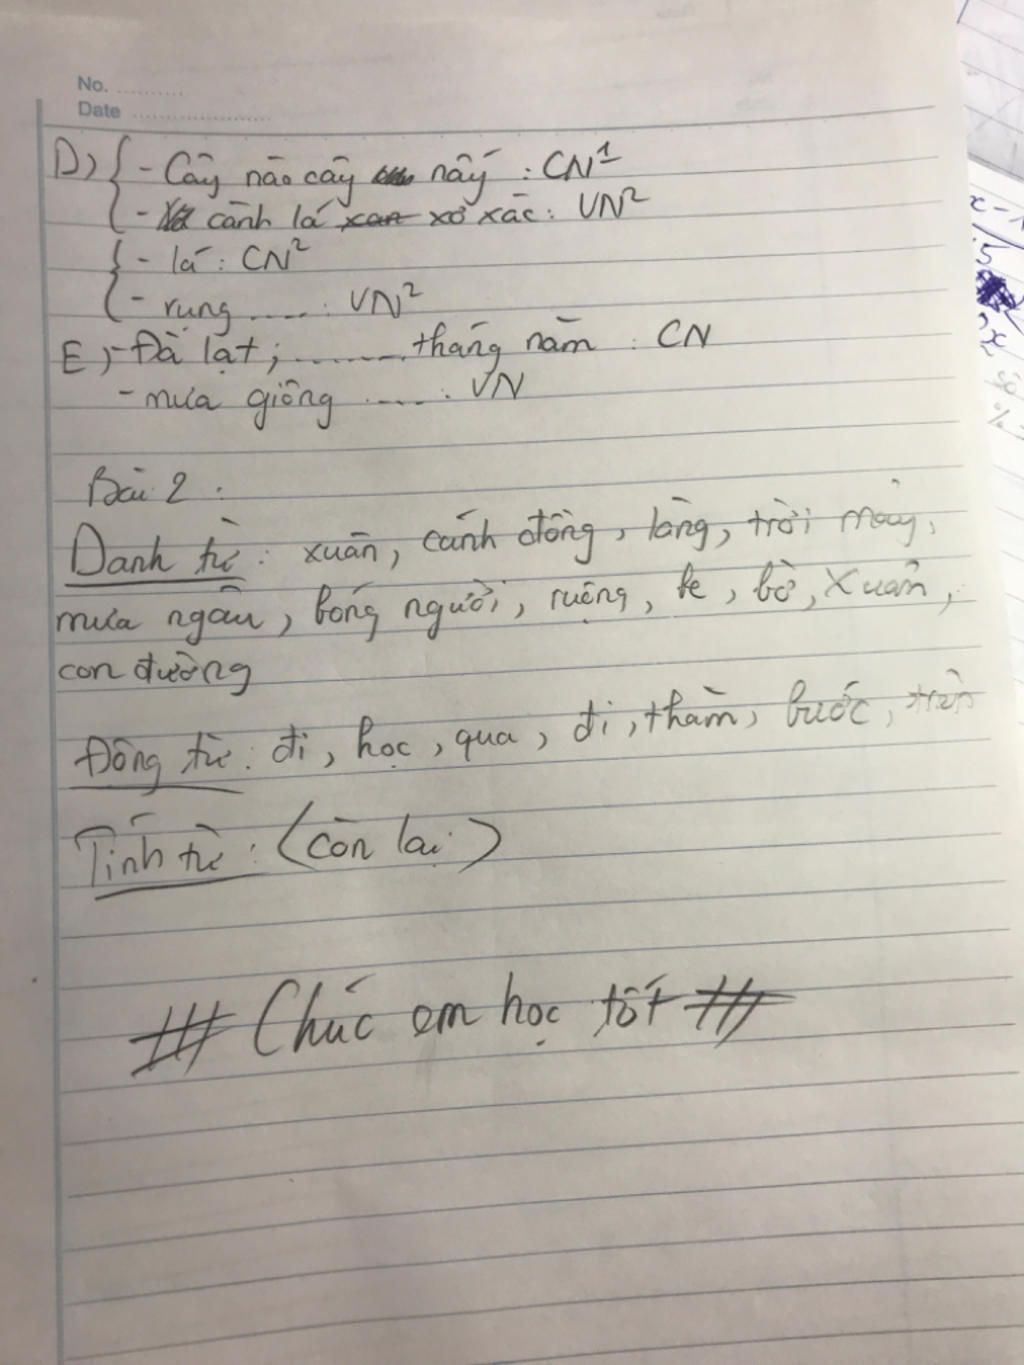 No. ..........
Date ......................
D) { - Cây nào cây nấy : CN1
- cành lá xơ xác : VN2
{ - lá : CN2
- rung ..... : VN2
E) - Đà lạt ; ........ tháng năm : CN
- mưa giông ..... : VN
Bài 2 :
Danh từ : xuân, cánh đồng, làng, trời mây,
mưa ngâu, bóng người, ruộng, be, bờ, Xuân,
con đường
Động từ : đi, học, qua, đi, thăm, bước,
Tính từ : (còn lại)
Chúc em học tốt
x
5
x
số
%